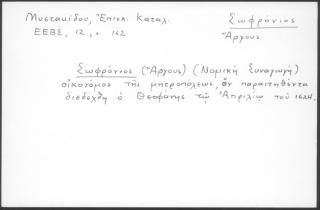 Μυστακίδου, Ἐπισκ. Καταλ.
ΕΕΒΣ, 12, σ 162
Σωφρόνιος
Ἄργους
Σωφρόνιος (Ἄργους) (Νομικὴ Συναγωγὴ)
οἰκονόμος τῆς μητροπόλεως, ὃν παραιτηθέντα
διεδέχθη ὁ Θεοφάνης τῷ Ἀπριλίῳ τοῦ 1624.